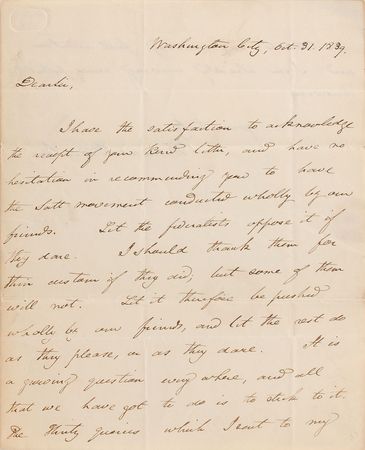 Washington City, Oct. 31. 1839.
Dear Sir,
I have the satisfaction to acknowledge
the receipt of your kind letter, and have no
hesitation in recommending you to have
the Salt movement conducted wholly by our
friends. Let the federalists oppose it if
they dare. I should thank them for
their if they did, but some of them
will not. Let it therefore be pushed
wholly by our friends, and let the rest do
as they please, or as they dare. It is
a growing question every where, and all
that we have got to do is to stick to it.
The thirty queries which I sent to my